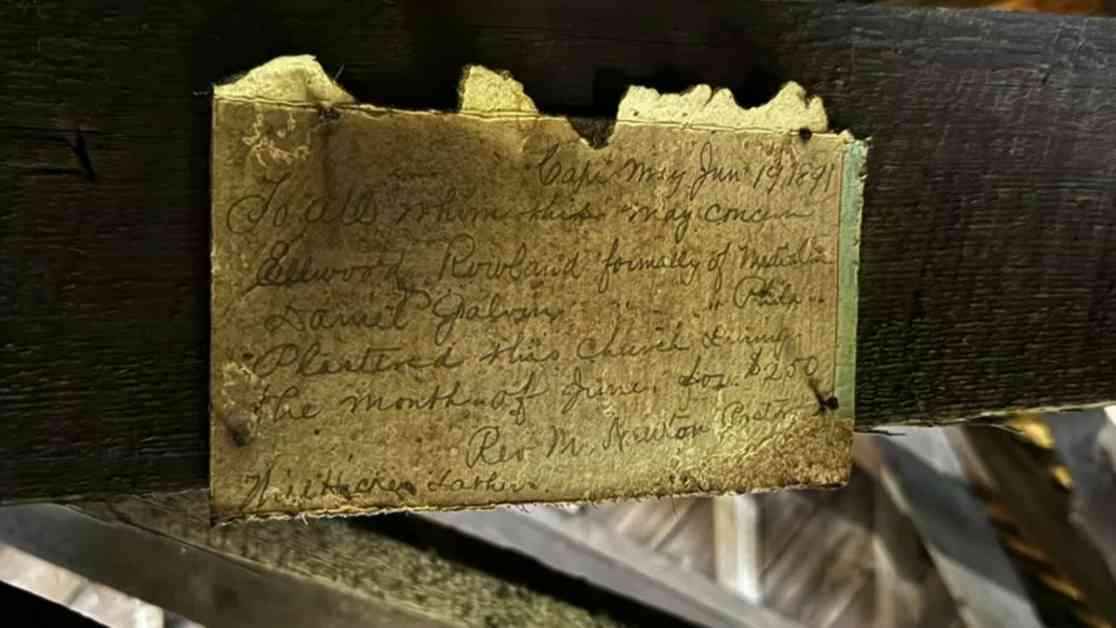 Cape May Jun 19 1891
To all whom this may concern
Ellwood Rowland formally of
Daniel Galvin " " Phila "
Plastered this Church During
the month of June. for $250
Rev M. Newton Pastor
Will Lathers.